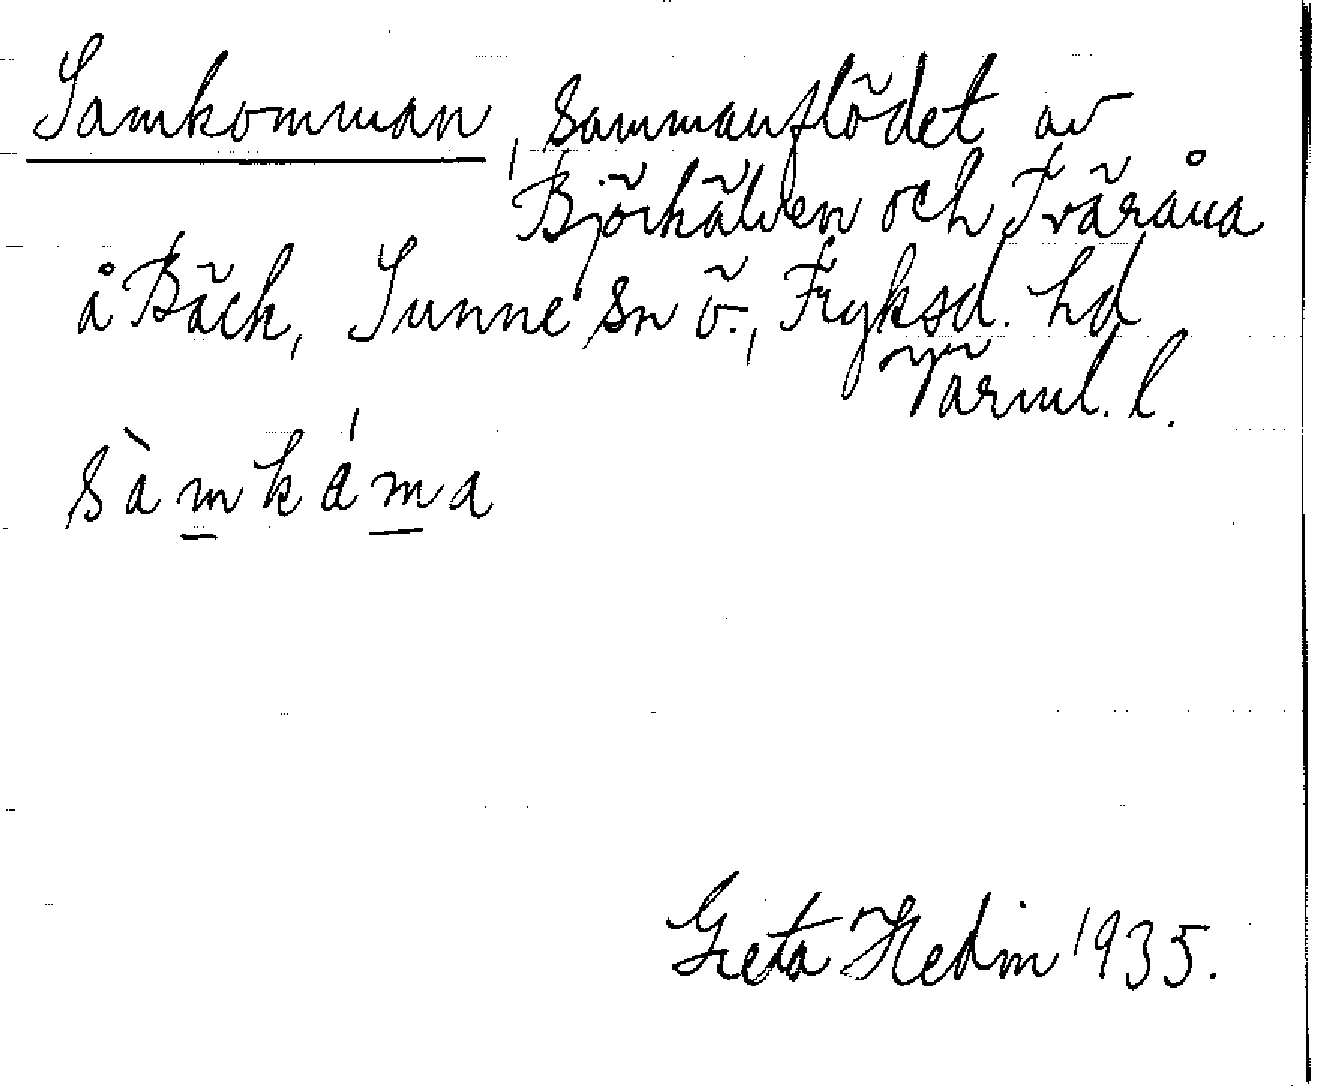 Samkomman, sammanflödet av
Björkälven och Tväråna
å Bäck, Sunne sn ö., Fryksd. hd
Värml. l.
sàmkáma
Greta Hedin 1935.